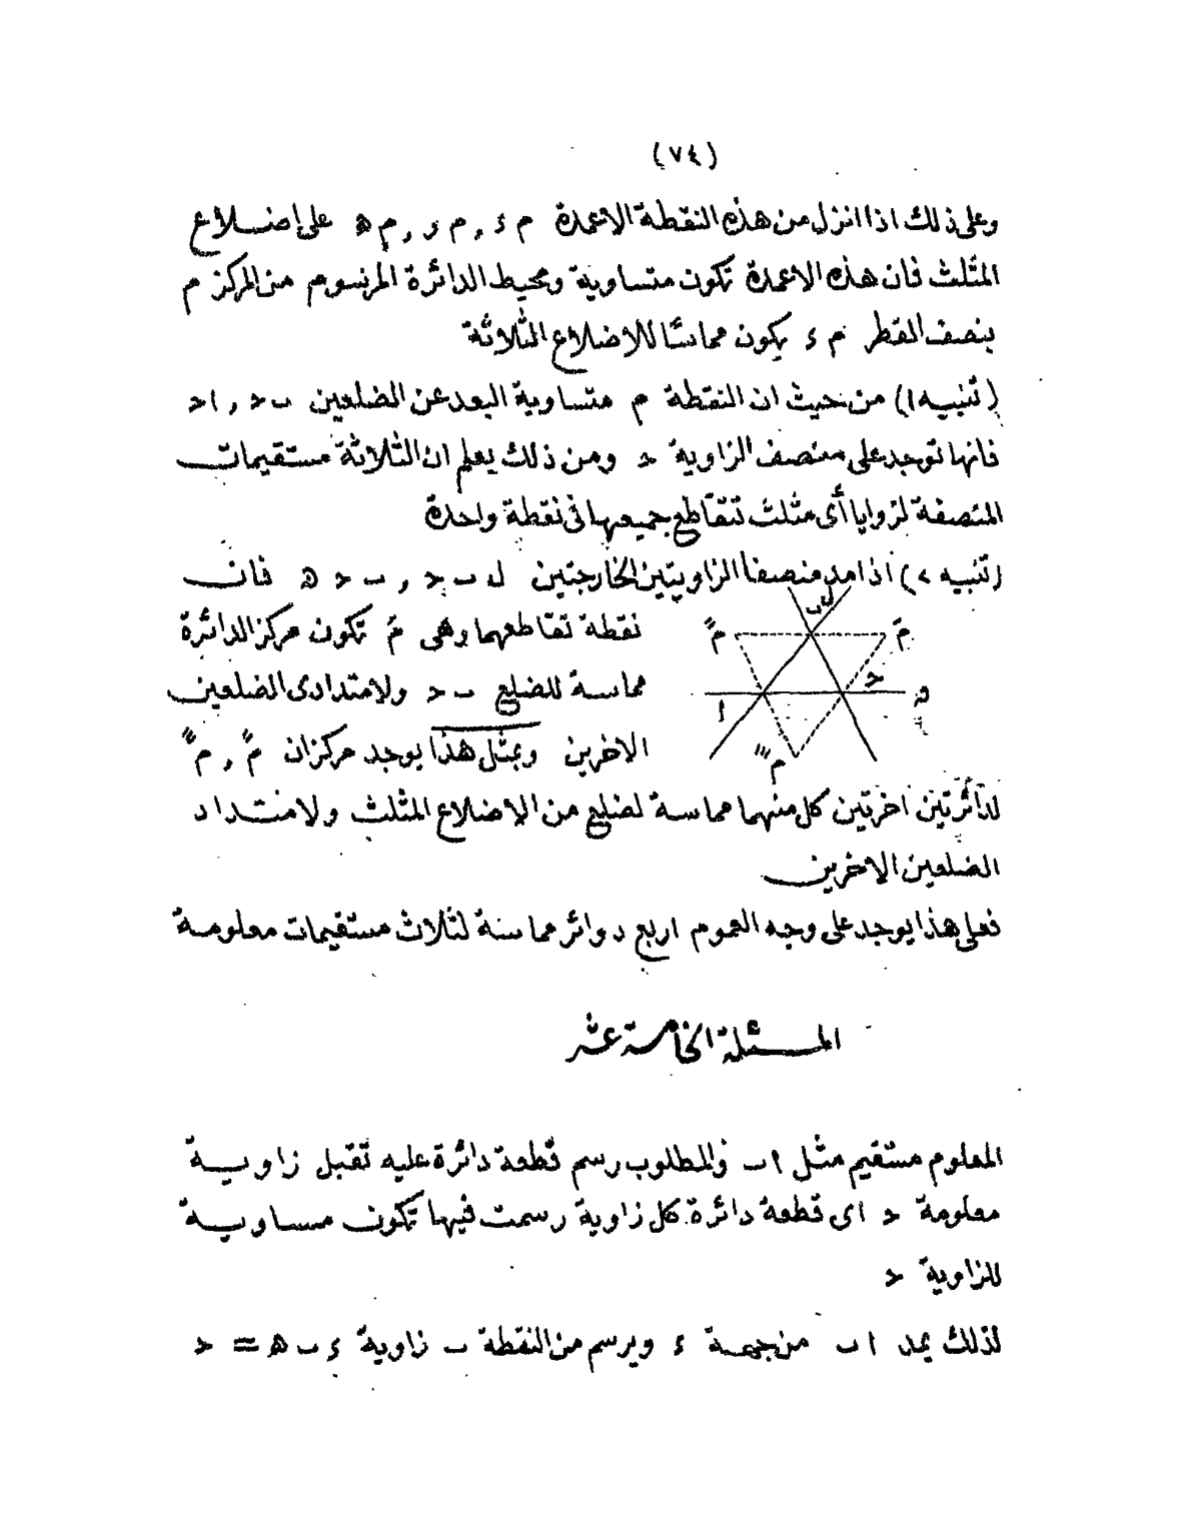 (٧٤)
وعلى ذلك اذا انزل من هذه النقطة الاعمدة م ء , م ر , م ه على اضلاع
المثلث فان هذه الاعمدة تكون متساوية ومحيط الدائرة المرسوم من المركز م
بنصف القطر م ء يكون مماسا للاضلاع الثلاثة
(تنبيه ١) من حيث ان النقطة م متساوية البعد عن الضلعين ب ح , ا ح
فانها توجد على منصف الزاوية ح ومن ذلك يعلم ان الثلاثة مستقيمات
المنصفة لزوايا أى مثلث تتقاطع جميعها فى نقطة واحدة
(تنبيه ٢) اذا مد منصفا الزاويتين الخارجتين ل ب ح , ب ح ه فان
نقطة تقاطعهما وهى مَ تكون مركز الدائرة
مماسة للضلع ب ح ولامتدادى الضلعين
الاخرين وبمثل هذا يوجد مركزان مً , مً
ل ب
مَ
مً
ح
ه
ا
م
لدائرتين اخرتين كل منهما مماسة لضلع من الاضلاع المثلث ولامتداد
الضلعين الاخرين
فعلى هذا يوجد على وجه العموم اربع دوائر مماسة لثلاث مستقيمات معلومة
المسئلة الخامسة عشر
المعلوم مستقيم مثل ا ب والمطلوب رسم قطعة دائرة عليه تقبل زاوية
معلومة ح اى قطعة دائرة كل زاوية رسمت فيها تكون مساوية
للزاوية ح
لذلك يمد ا ب من جهة ء ويرسم من النقطة ب زاوية ء ب ه = ح